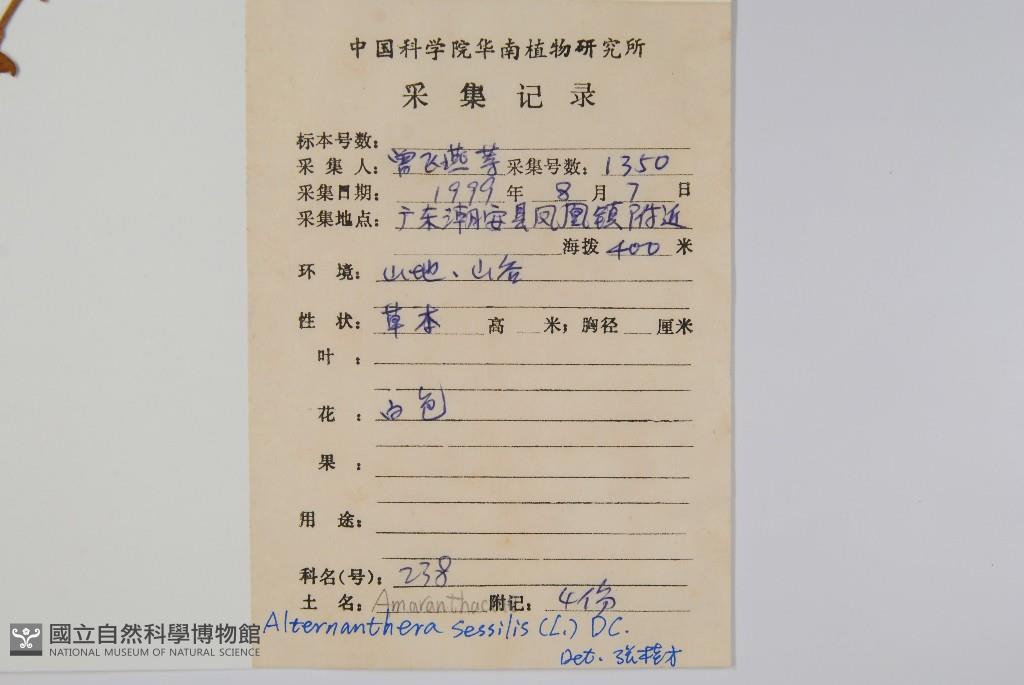 中国科学院华南植物研究所
采集记录
标本号数:
采集人: 曾飞燕等 采集号数: 1350
采集日期: 1999年8月7日
采集地点: 广东潮安县凤凰镇附近
海拨 400 米
环境: 山地、山谷
性状: 草本 高 米; 胸径 厘米
叶:
花: 白色
果:
用途:
科名(号): 238
土名: Amaranthac 附记: 4份
Alternanthera sessilis (L.) DC.
Det. 张桂才
國立自然科學博物館
NATIONAL MUSEUM OF NATURAL SCIENCE